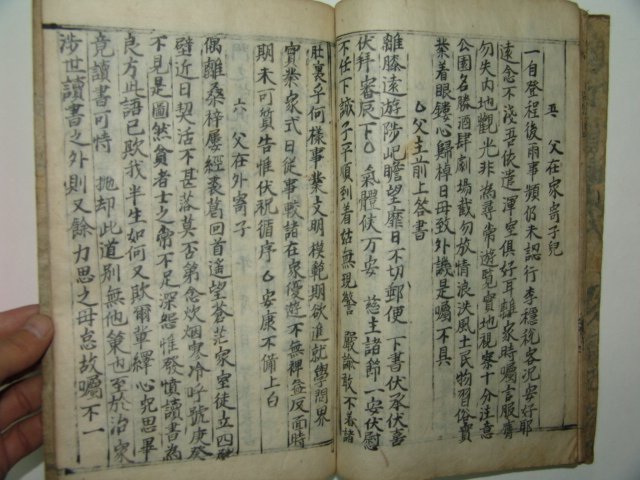 五 父在家寄子兒
一自登程後兩事頻仍未認行李穩稅客況安好耶
遠念不淺吾依遣渾室俱好耳離家時囑言服膺
勿失內地觀光非為尋常遊覽實地視察十分注意
公園名勝酒肆劇場截勿放情浪泆風土民物習俗實
業着眼鏤心歸棹日毋致外譏是囑不具
父主前上答書
離膝遠遊陟屺瞻望靡日不切郵便下書伏承伏審
伏拜審辰下 氣體俠万安 慈主諸節一安伏慰
不任下誠子平順到着姑無現警 嚴諭敢不奉諸
肚裏乎何樣事業文明模範期欲進就學問界
實業家式日從事戰諸在衆優遊不無裨益反面時
期未可質告惟伏祝循序 安康不備上白
六 父在外寄子
偶離桑梓屢經裘葛回首遥望蒼茫家室徒立四
壁近日契活不甚落莫否第念炊烟寒冷呼號庚癸
不見是圖然貧者士之常不足深怨惟發憤讀書為
良方此語已欺我半生如何又欺爾軰繹心究思畢
竟讀書可恃 抛却此道別無他策內至於治家
涉世讀書之外則又餘力思之毋怠故囑不一